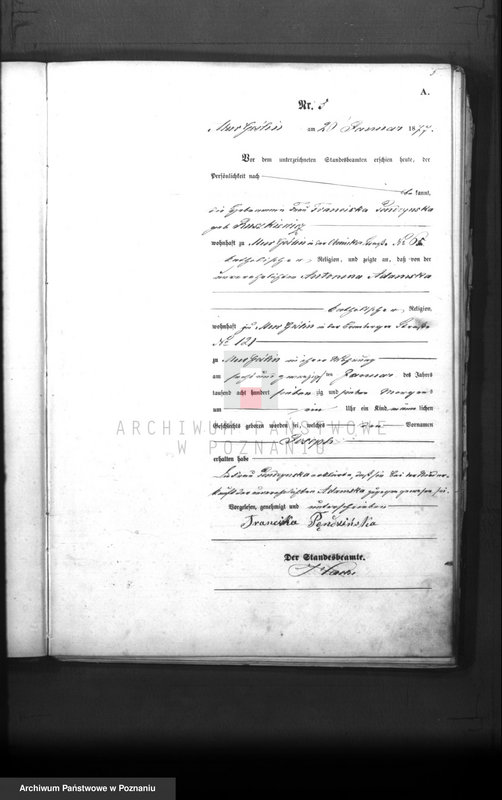 5
A.
Nr. 5
Mur Goslin am 29 Januar 1877.
Vor dem unterzeichneten Standesbeamten erschien heute, der
Persönlichkeit nach
be kannt,
die Hebamme Frau Franciska
geb.
wohnhaft zu Mur Goslin in der Straße No 65
katholischer Religion, und zeigte an, daß von der
unverehelichten Antonina Adamska
katholischer Religion,
wohnhaft zu Mur Goslin in der Straße
No 121
zu Mur Goslin in ihrer Wohnung
am sechs und zwanzig ten Januar des Jahrs
tausend acht hundert sieben zig und sieben Morgens
um ein Uhr ein Kind männ lichen
Geschlechts geboren worden sei, welches den Vornamen
Joseph
erhalten habe
Frau erklärte, daß sie bei der Niederkunft
der unverehelichten Adamska zugegen gewesen sei.
Vorgelesen, genehmigt und unterschrieben
Franciska Pędzińska
Der Standesbeamte.
ARCHIWUM PAŃSTWOWE
W POZNANIU
Archiwum Państwowe w Poznaniu